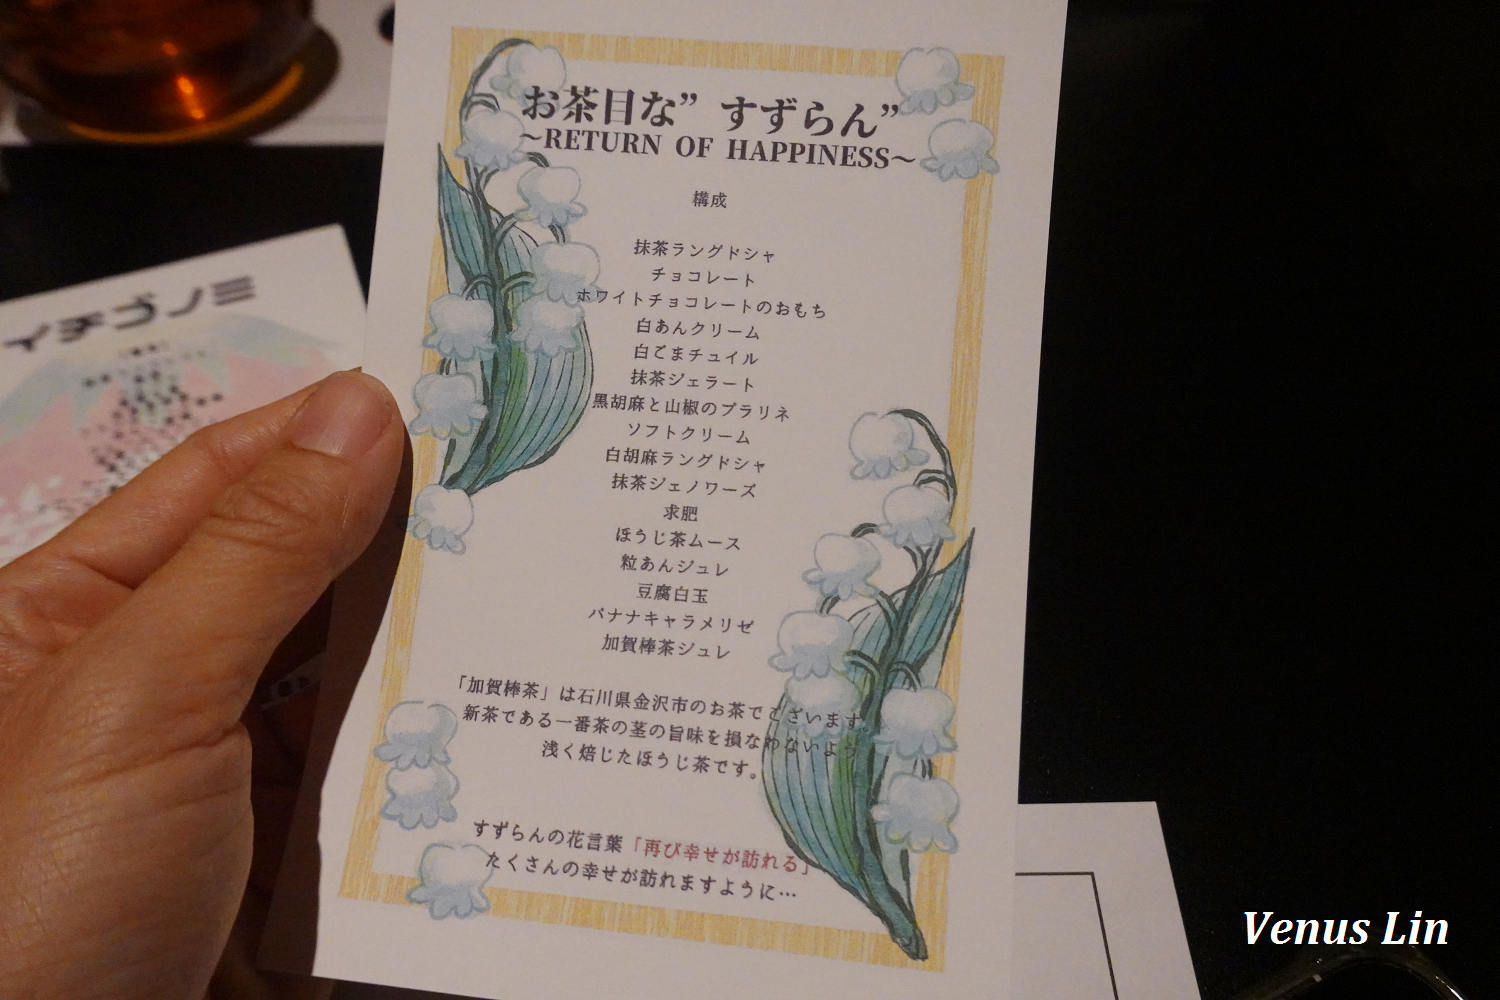 お茶目な”すずらん”
～RETURN OF HAPPINESS～
構成
抹茶ラングドシャ
チョコレート
ホワイトチョコレートのおもち
白あんクリーム
白ごまチュイル
抹茶ジェラート
黒胡麻と山椒のプラリネ
ソフトクリーム
白胡麻ラングドシャ
抹茶ジェノワーズ
求肥
ほうじ茶ムース
粒あんジュレ
豆腐白玉
バナナキャラメリゼ
加賀棒茶ジュレ
「加賀棒茶」は石川県金沢市のお茶でございます。
新茶である一番茶の茎の旨味を損なわないよう
浅く焙じたほうじ茶です。
すずらんの花言葉「再び幸せが訪れる」
たくさんの幸せが訪れますように…
Venus Lin